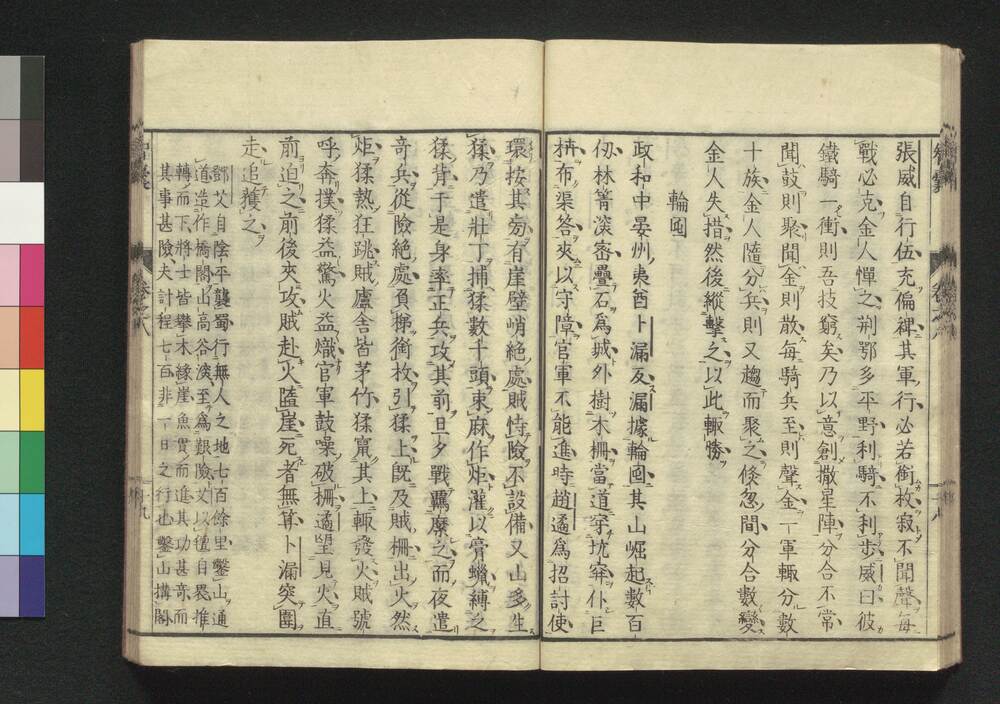 張威自行伍充偏裨其軍行必若銜枚寂不聞聲每
戰必克金人憚之荆鄂多平野利騎不利步威曰彼
鐵騎一衝則吾技窮矣乃以意創撒星陣分合不常
聞皷則聚聞金則散每騎兵至則聲金一軍輙分數
十族金人隨分兵則又趨而聚之倐忽間分合數變
金人失措然後縱擊之以此輙勝
輪囤
政和中晏州夷酋卜漏反漏據輪囤其山崛起數百
仭林箐深密疊石爲城外樹木柵當道穿坑穽仆巨
枿布渠答夾以守障官軍不能進時趙遹爲招討使
環按其旁有崖壁峭絶處賊恃險不設備又山多生
猱乃遣壯丁捕猱數千頭束麻作炬灌以膏蠟縛之
猱背于是身率正兵攻其前旦夕戰羈縻之而夜遣
奇兵從險絶處負梯銜枚引猱上旣及賊柵出火然
炬猱熱狂跳賊廬舍皆茅竹猱竄其上輙發火賊號
呼奔撲猱益驚火益熾官軍鼓噪破柵遹望見火直
前迫之前後夾攻賊赴火墮崖死者無算卜漏突圍
走追獲之
鄧艾自陰平襲蜀行無人之地七百餘里鑿山通
道造作橋閣山高谷深至爲艱險艾以氊自裹推
轉而下將士皆攀木緣崖魚貫而進其功甚竒而
其事甚險夫計程七百非一日之行也鑿山搆閣
智囊
卷之八
十九
十八